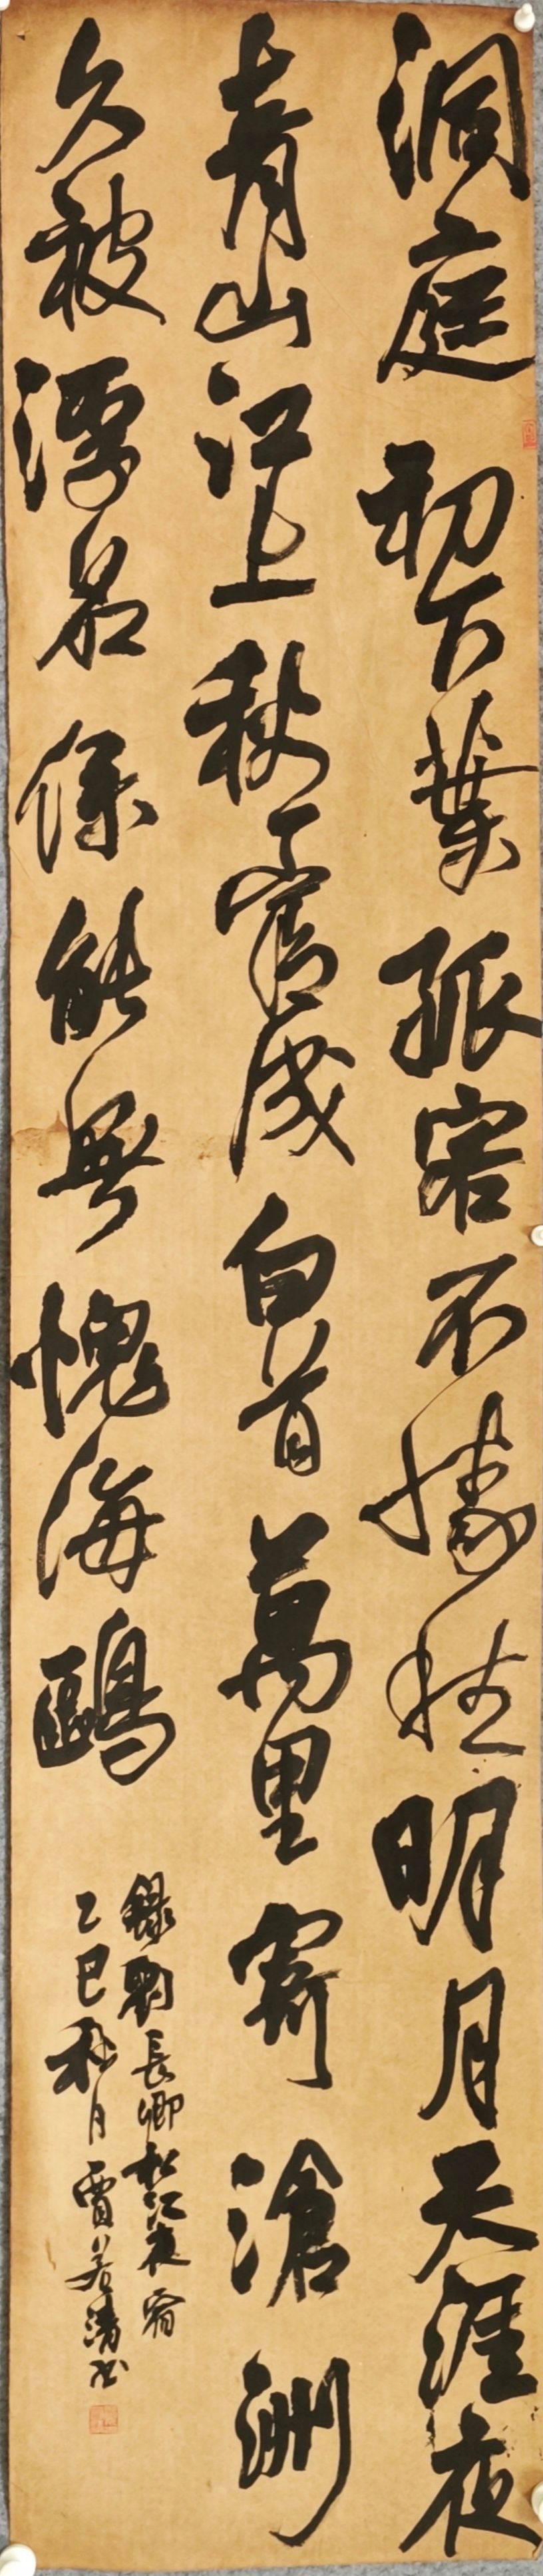 洞庭初下葉孤客不勝愁明月天涯夜
青山江上秋一官成白首萬里寄滄洲
久被浮名係能無愧海鷗
錄劉長卿松江夜宿
乙巳秋月賈若書